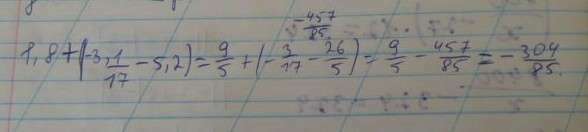 -457/85
1,8+(-3 1/17 - 5,2) = 9/5 + (-3/17 - 26/5) = 9/5 - 457/85 = -304/85